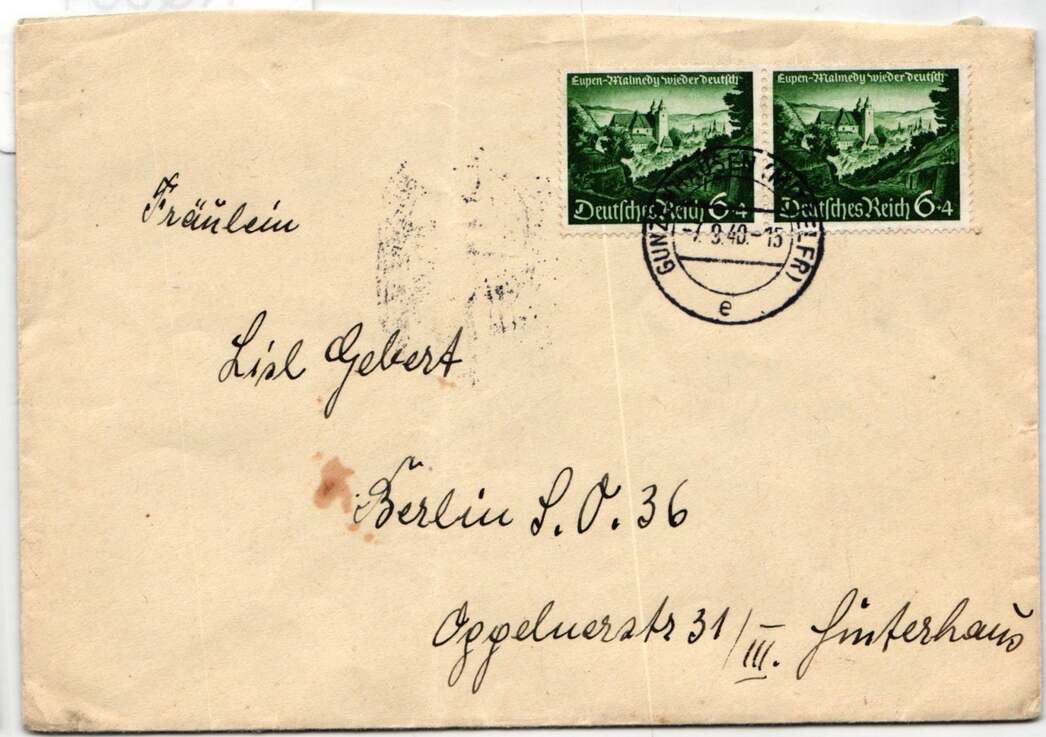 Eupen-Malmedy wieder deutsch
Deutsches Reich 6+4
Eupen-Malmedy wieder deutsch
Deutsches Reich 6+4
GUNZENHAUSEN (MITTELFR)
-7.8.40.-15
e
Fräulein
Lisl Gebert
Berlin S.O. 36
Oppelnerstr 31/III. Hinterhaus